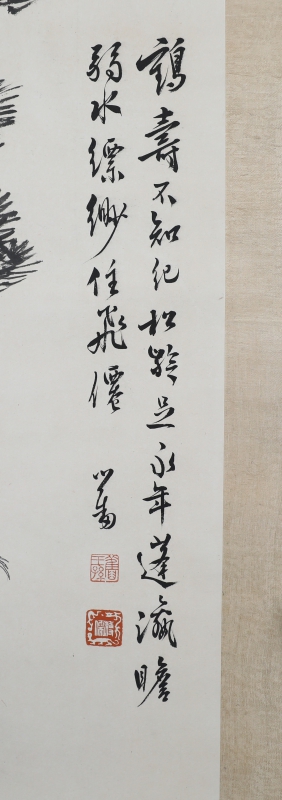 鶴壽不知紀松齡足永年蓬瀛瞻
弱水縹緲住飛僊
心畬